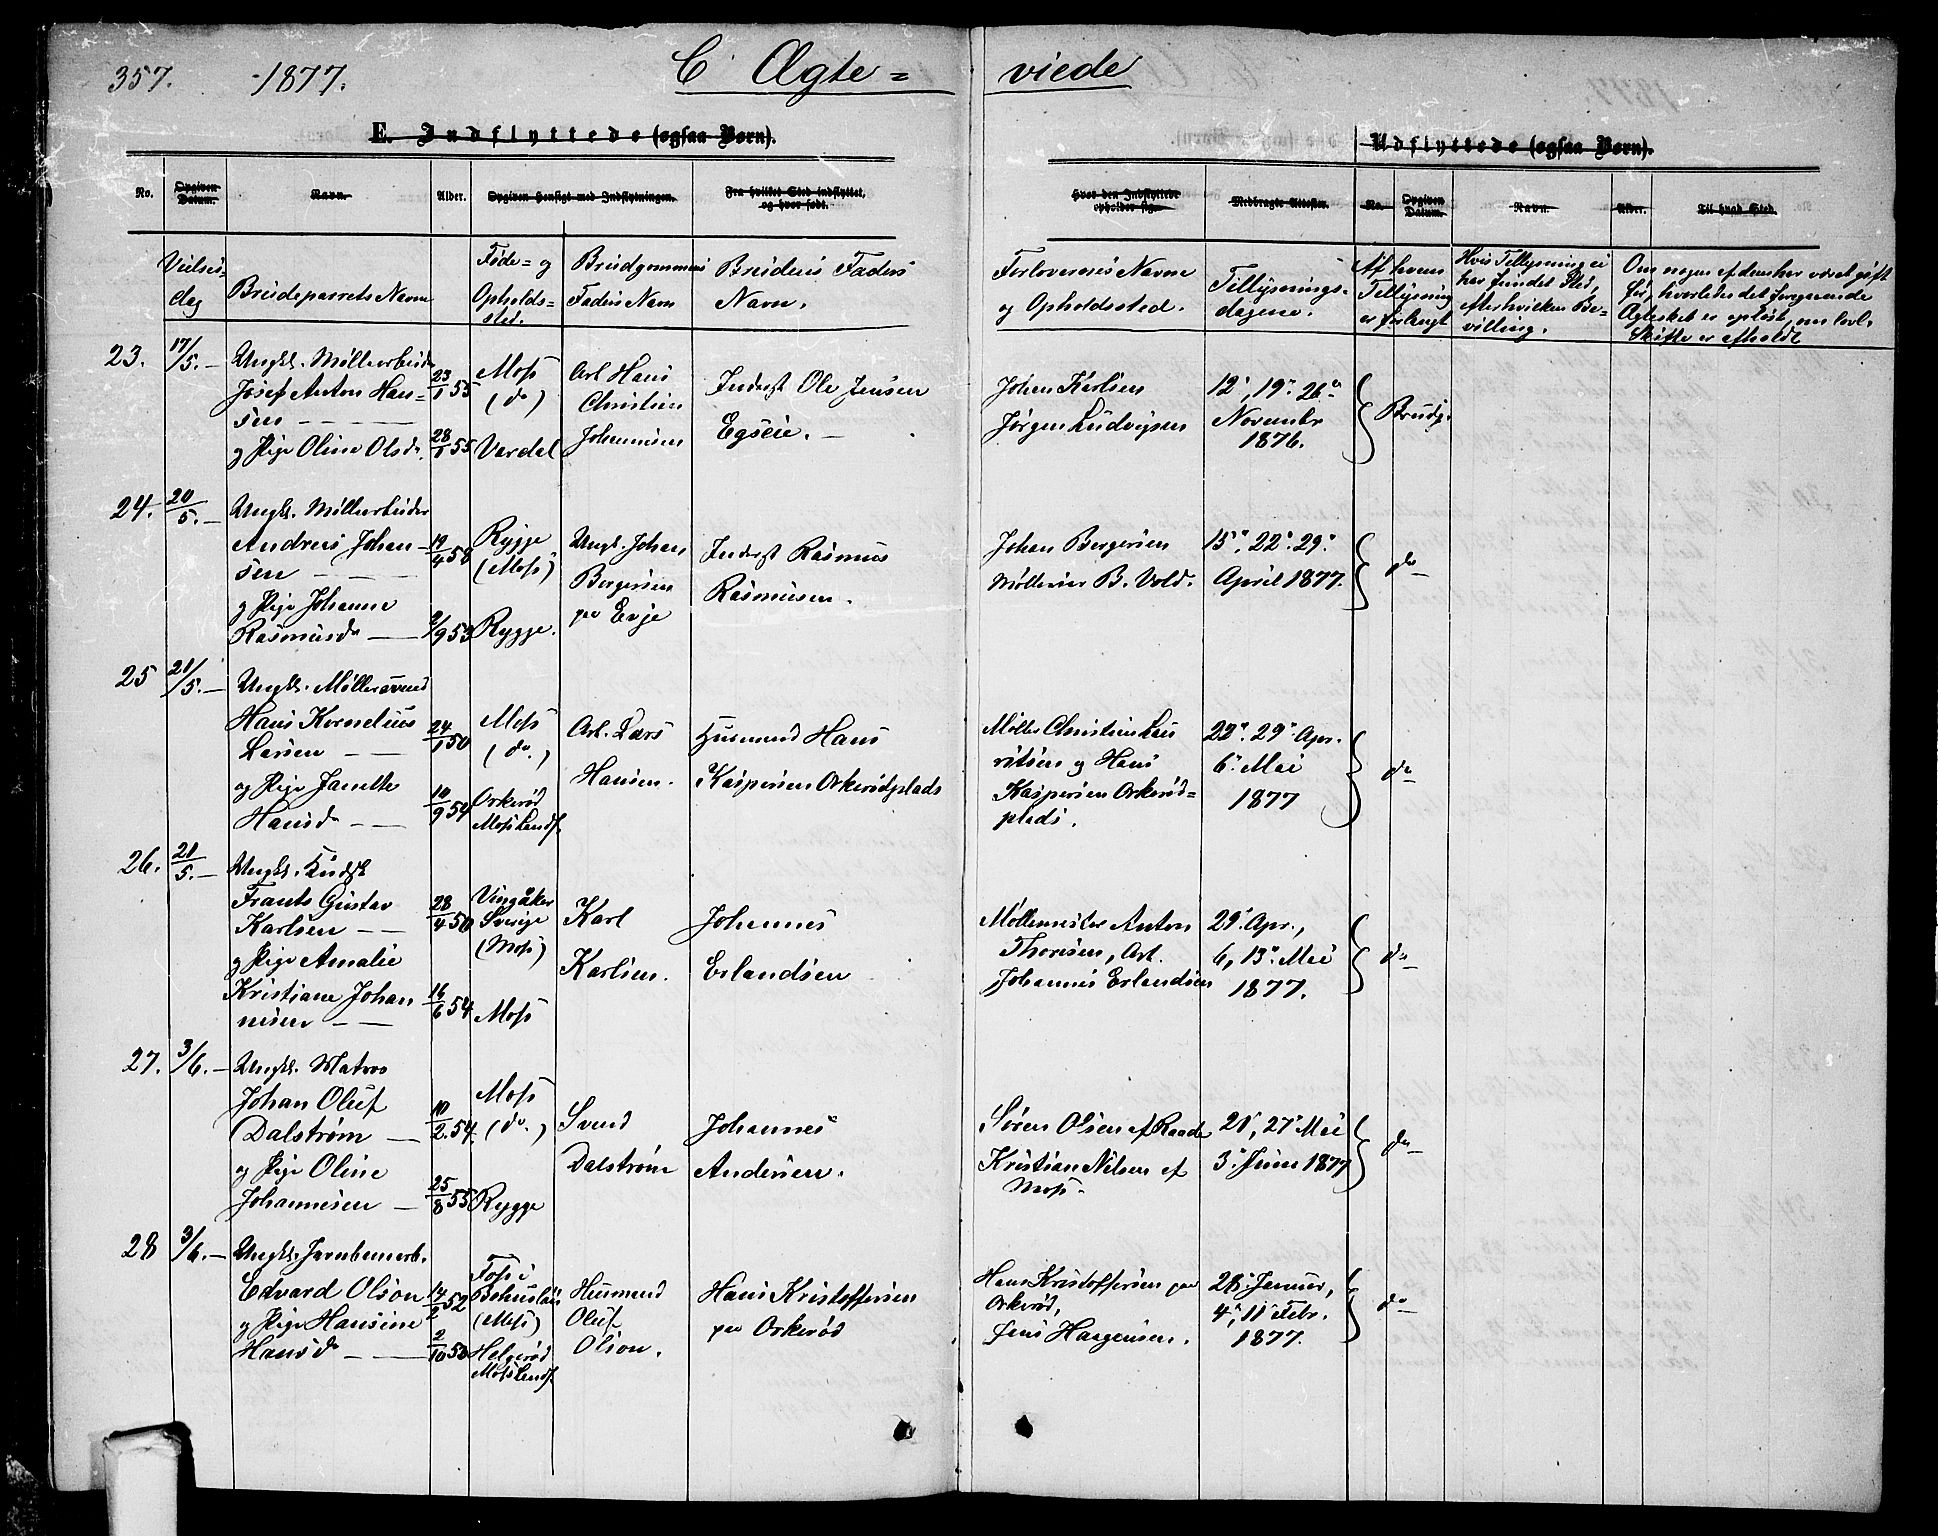 357. -1877. C Ægte= viede
E. Indflyttede (ogsaa Børn). Udflyttede (ogsaa Børn).
No. Opgiven Datum. Navn. Alder. Opgiven Hensigt med Indflytningen. Fra hvilket Sted indflyttet, og hvor født. Hvor den Indflyttede opholder sig. Medbragte Attester. No. Opgiven Datum. Navn. Alder. Til hvad Sted.
Vielses-
dag
Brudeparrets Navn
Føde= og
Opholds=
sted.
Brudgommens
Faders Navn
Brudens Faders
Navn.
Forlovernes Navne
og Opholdssted.
Tillysnings-
dagene.
Af hvem
Tillysning
er forlangt
Hvis Tillysning ei
har fundet Sted,
efter hvilken Be-
villing.
Om nogen af dem har været gift
før, hvorledes det foregaaende
Ægteskab er opløst, om lovl.
Skifte er afholdt
23. 17/5. — Ungkl. Møllearbeider
Josef Anton Han=
sen — — — 23/1 55
og Pige Oline Olsdr. 28/1 55
Moss
(do)
Vardal
Arb. Hans
Christian
Johannesen
Inderst Ole Jensen
Egseie. —
Johan Karlsen
Jørgen Ludvigsen
12', 19" 26"
Novembr
1876.
Brudg.
24. 20/5. — Ungkl. Møllearbeider
Andreas Johan-
sen — — — 19/4 58
og Pige Johanne
Rasmusdr — 2/9 53
Rygge
(Moss)
Rygge.
Ungk. Johan
Bergersen
paa Evje
Inderst Rasmus
Rasmussen.
Johan Bergersen
Møllesvend B. Vold.
15", 22" 29"
April 1877.
do
25 21/5. — Ungkl. Møllersvend
Hans Kornelius
Larsen — — 24/1 50
og Pige Janette
Hansdr — — 10/9 54
Moss
(do.)
Orkerød
Moss Landsf.
Arb. Lars
Hansen.
Husmand Hans
Kaspersen Orkerødplads
Møller Christian Lau
ritsen og Hans
Kaspersen Orkerød=
plads.
22" 29" Apr.
6" Mai
1877
do
26. 21/5. — Ungkl. Kudsk
Frants Gustav
Karlsen — — 28/4 50
og Pige Amalie
Kristiane Johan
nesen — — 16/6 54
Vingåker
Sverige
(Moss)
Moss
Karl
Karlsen.
Johannes
Erlandsen
Møllemester Anton
Thoresen, Arb.
Johannes Erlandsen
29" Apr.,
6, 13" Mai
1877.
do
27. 3/6. — Ungkl. Matros
Johan Oluf
Dalstrøm — 10/2. 54
og Pige Oline
Johannesen — 25/8 55
Moss
(do.)
Rygge
Svend
Dalstrøm
Johannes
Andersen.
Søren Olsen af Raade
Kristian Nilsen af
Moss.
21", 27" Mai
3" Juni 1877
do
28 3/6. — Ungkl. Jernbanearb.
Edvard Olson 14/2 52
og Pige Hansine
Hansdr — — 2/10 50
Foss i
Bohuslän
(Moss)
Helgerød
Moss Landsf.
Husmand
Oluf
Olson.
Hans Kristoffersen
paa Orkerød
Hans Kristoffersen paa
Orkerød,
Jens Haagensen.
28" Januar,
4", 11" Febr.
1877.
do